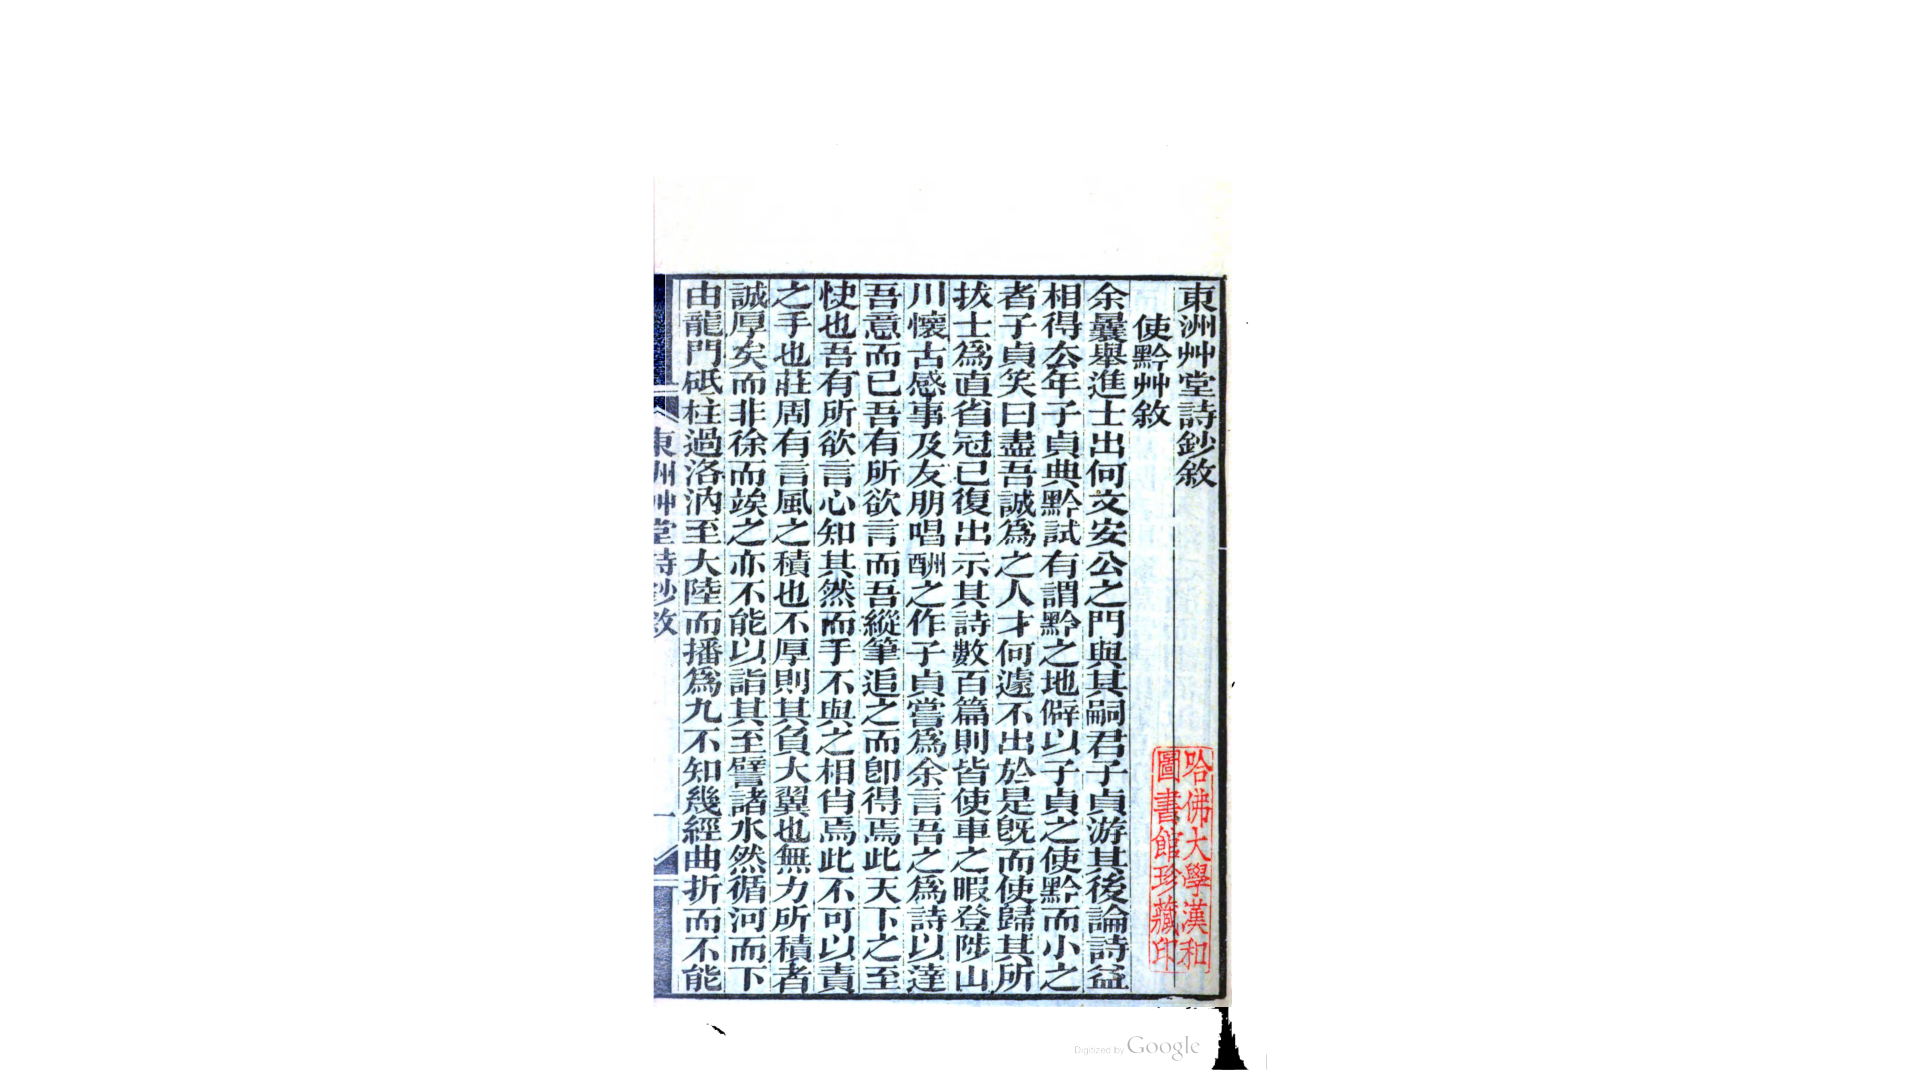 東洲艸堂詩鈔敘
使黔艸敘
余曩舉進士出何文安公之門與其嗣君子貞游其後論詩益
相得厺年子貞典黔試有謂黔之地僻以子貞之使黔而小之
者子貞笑曰盡吾誠爲之人才何遽不出於是旣而使歸其所
拔士爲直省冠已復出示其詩數百篇則皆使車之暇登陟山
川懷古感事及友朋唱酬之作子貞嘗爲余言吾之爲詩以達
吾意而已吾有所欲言而吾縱筆追之而卽得焉此天下之至
快也吾有所欲言心知其然而手不與之相肖焉此不可以責
之手也莊周有言風之積也不厚則其負大翼也無力所積者
誠厚矣而非徐而竢之亦不能以詣其至譬諸水然循河而下
由龍門砥柱過洛汭至大陸而播爲九不知幾經曲折而不能
東洲艸堂詩鈔敘
一
哈佛大學漢和
圖書館珍藏印
Digitized by Google